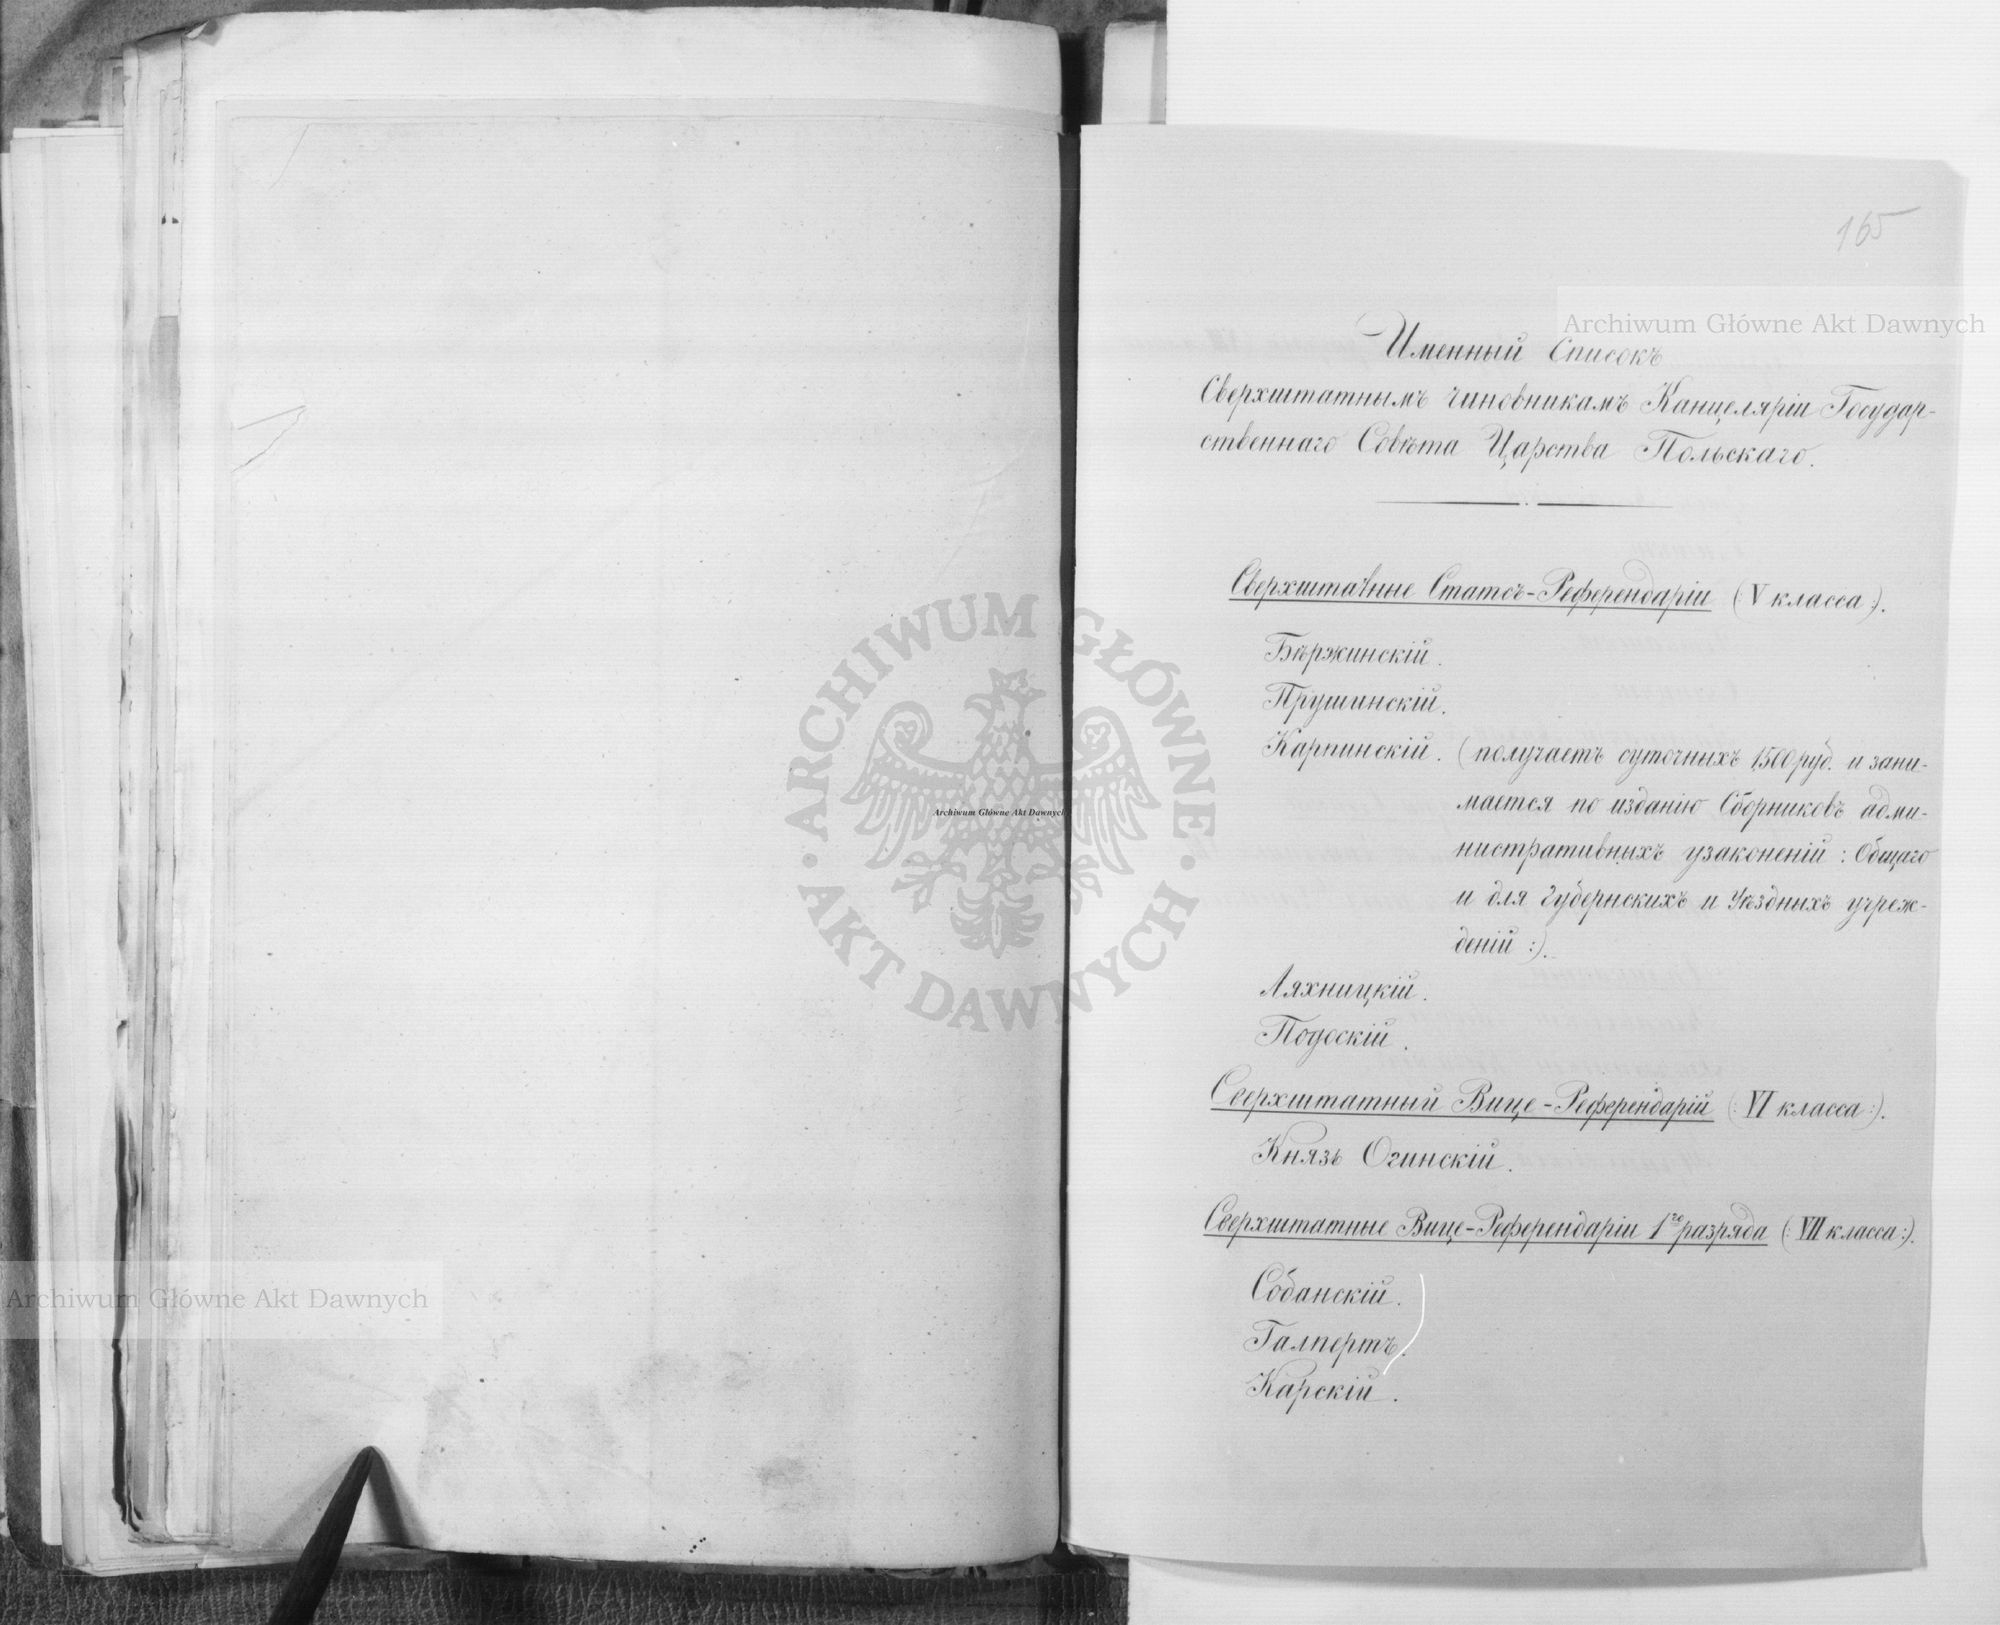 165
Именный Списокъ
Сверхштатнымъ чиновникамъ Канцеляріи Государ-
ственнаго Совѣта Царства Польскаго.
Сверхштатные Статсъ-Референдаріи (V класса:).
Бѣржинскій.
Прушинскій.
Карпинскій. (получаетъ суточныхъ 1500 руб. и зани-
мается по изданію Сборниковъ адми-
нистративныхъ узаконеній: Общаго
и для Губернскихъ и Уѣздныхъ учреж-
деній:).
Ляхницкій.
Подоскій.
Сверхштатный Вице-Референдарій (: VI класса:).
Князь Огинскій.
Сверхштатные Вице-Референдаріи 1го разряда (: VII класса:).
Собанскій.
Галпертъ.
Карскій.
Archiwum Główne Akt Dawnych
Archiwum Główne Akt Dawnych
Archiwum Główne Akt Dawnych
ARCHIWUM GŁÓWNE · AKT DAWNYCH ·